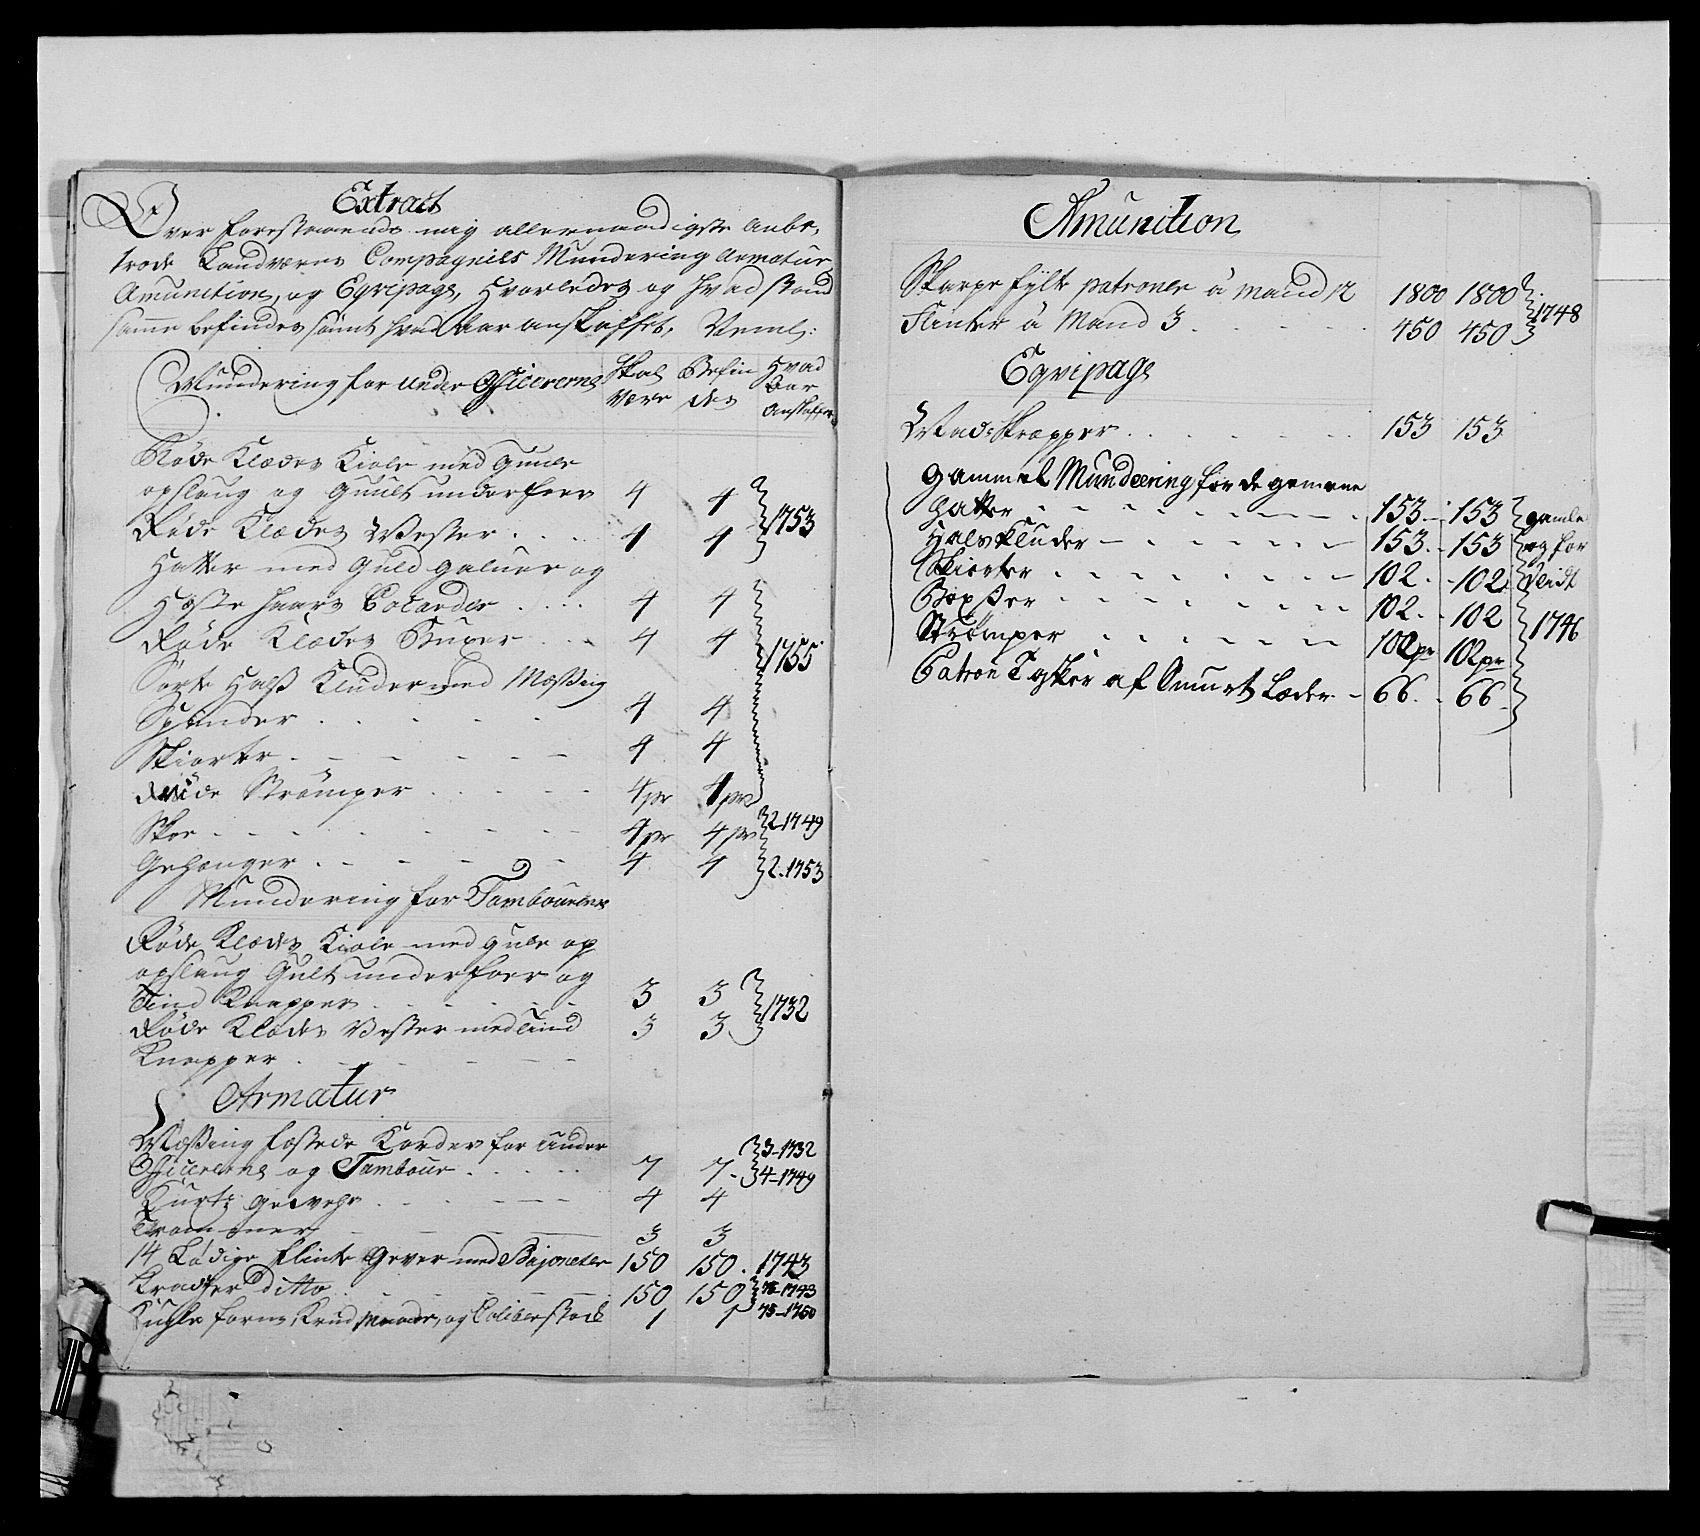 Extract
Over forestaaende mig allernaadigste anbe,
troede Landværns Compagnies Mundering Armatur,
Amunition, og Eqvipage, hvorledes og hvad stand
samme befindes samt hvad Aar anskaffet, Neml:
Mundering for under Officererne Skal Være Befindes Hvad Aar Anskaffet
Røde Klædes Kiole med Guule
opslaug og Guult underfoer 4 4
Røde Klædes Vester 4 4 1753
Hatter med Guld galuner og
Heste haars Cocarder 4 4
Røde Klædes Buxer 4 4 1755
Sorte Halß Kluder med Meßing
Spender 4 4
Skiorter 4 4
Røde Strømper 4 pr 4 pr
Skoe 4 pr 4 pr 2-1749
Gehænger 4 4 2-1753
Mundering for Tambourerne
Røde Klædes Kiole med gule op
opslaug Gult underfoer og
Tind Knapper 3 3 1732
Røde Klædes Vester med Tind 3 3
Knapper
Armatur
Meßing fæstede Korder for under 3-1732
Officererne og Tambour 7 7 4-1749
Kurtz gewehr 4 4
Trommer 3 3
14 Lødige flinte Gever med Bajoneter 150 150 1743
Kradser ditto 150 150 75-1743
Kugle form, Krud Maader, og Caliberstok 1 1 75-1750
Amunition
Skarpe fylte patroner à mand 12 1800 1800 1748
Flinter à Mand 3 450 450
Eqvipage
Mad-Skrepper 153 153
gammel Mundeering for de gemene
Hatter 153 153 gamle
Halskluder 153 153 og for
Skiorter 102 102 slidt
Boxser 102 102
Strømper 102 pr 102 pr 1746
Patron Tasker af Smurt Læder 66 66